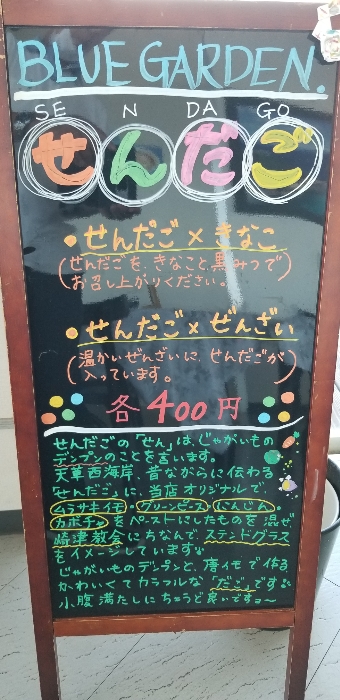 BLUE GARDEN.
SE N DA GO
せんだご
・せんだご×きなこ
(せんだごを、きなこと黒みつで
お召し上がりください。)
・せんだご×ぜんざい
(温かいぜんざいに、せんだごが
入っています。)
各400円
せんだごの「せん」は、じゃがいもの
デンプンのことを言います。
天草西海岸、昔ながらに伝わる
「せんだご」に、当店オリジナルで、
ムラサキイモ・グリーンピース・にんじん・
カボチャをペーストにしたものを混ぜ
崎津教会にちなんで、ステンドグラス
をイメージしています
じゃがいもデンプンと、唐イモで作る
かわいくてカラフルな「だご」です
小腹満たしにちょうど良いですョ〜